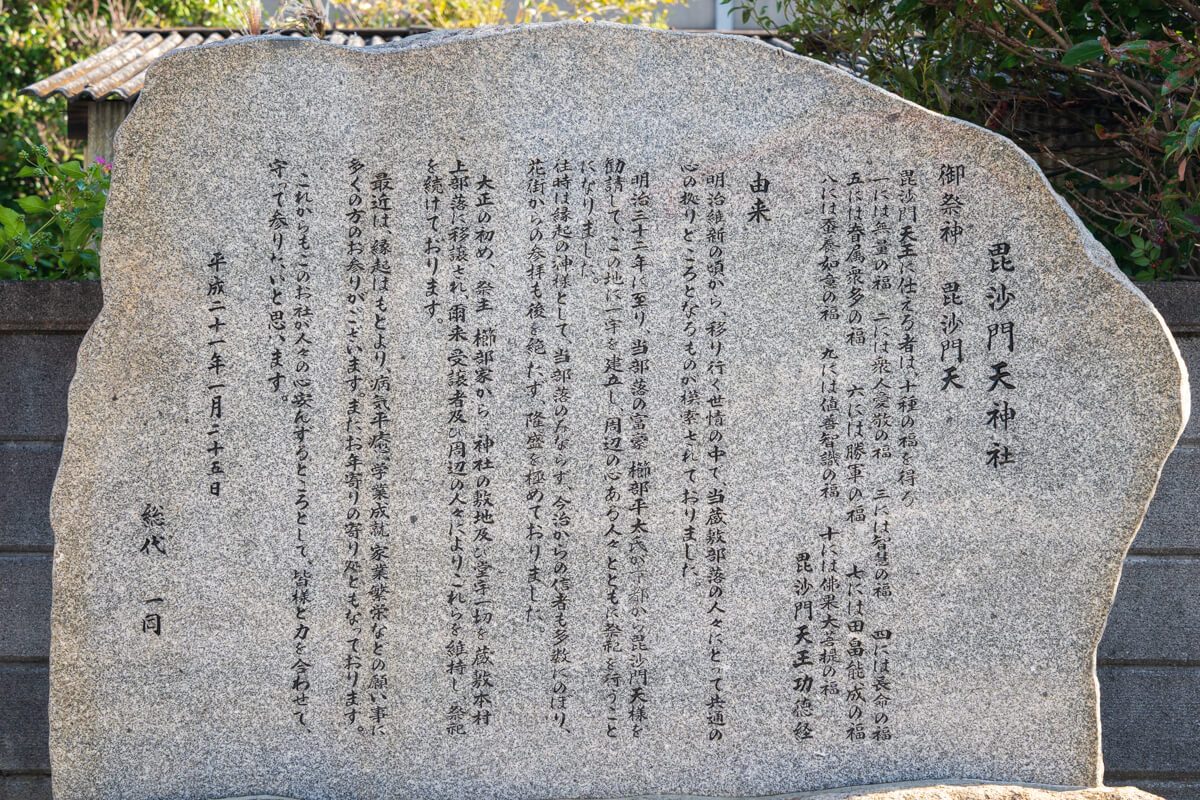 毘沙門天神社
御祭神　毘沙門天
毘沙門天王に仕える者は、十種の福を得る
一には無量の福　二には衆人愛敬の福　三には智慧の福　四には長命の福
五には眷属衆多の福　六には勝軍の福　七には田畠能成の福
八には蚕養如意の福　九には値善智識の福　十には佛果大菩提の福
毘沙門天王功徳経
由来
明治維新の頃から、移り行く世情の中で、当蔵敷部落の人々にとって共通の
心の拠りところとなるものが模索されておりました。
明治三十二年に至り、当部落の富豪　櫛部平太氏が京都から毘沙門天様を
勧請して、この地に一宇を建立し、周辺の心ある人々とともに祭祀を行うこと
になりました。
往時は縁起の神様として、当部落のみならず、今治からの信者も多数にのぼり、
花街からの参拝も後を絶たず、隆盛を極めておりました。
大正の初め、祭主　櫛部家から、神社の敷地及び堂宇一切を、蔵敷本村
上部落に移譲され、爾来、受譲者及び周辺の人々によりこれらを維持し、祭祀
を続けております。
最近は、縁起はもとより、病気平癒、学業成就、家業繁栄などの願い事に
多くの方のお参りがございます。またお年寄りの寄り処ともなっております。
これからもこのお社が人々の心安んずるところとして、皆様と力を合わせて、
守って参りたいと思います。
平成二十一年一月二十五日
総代　一同